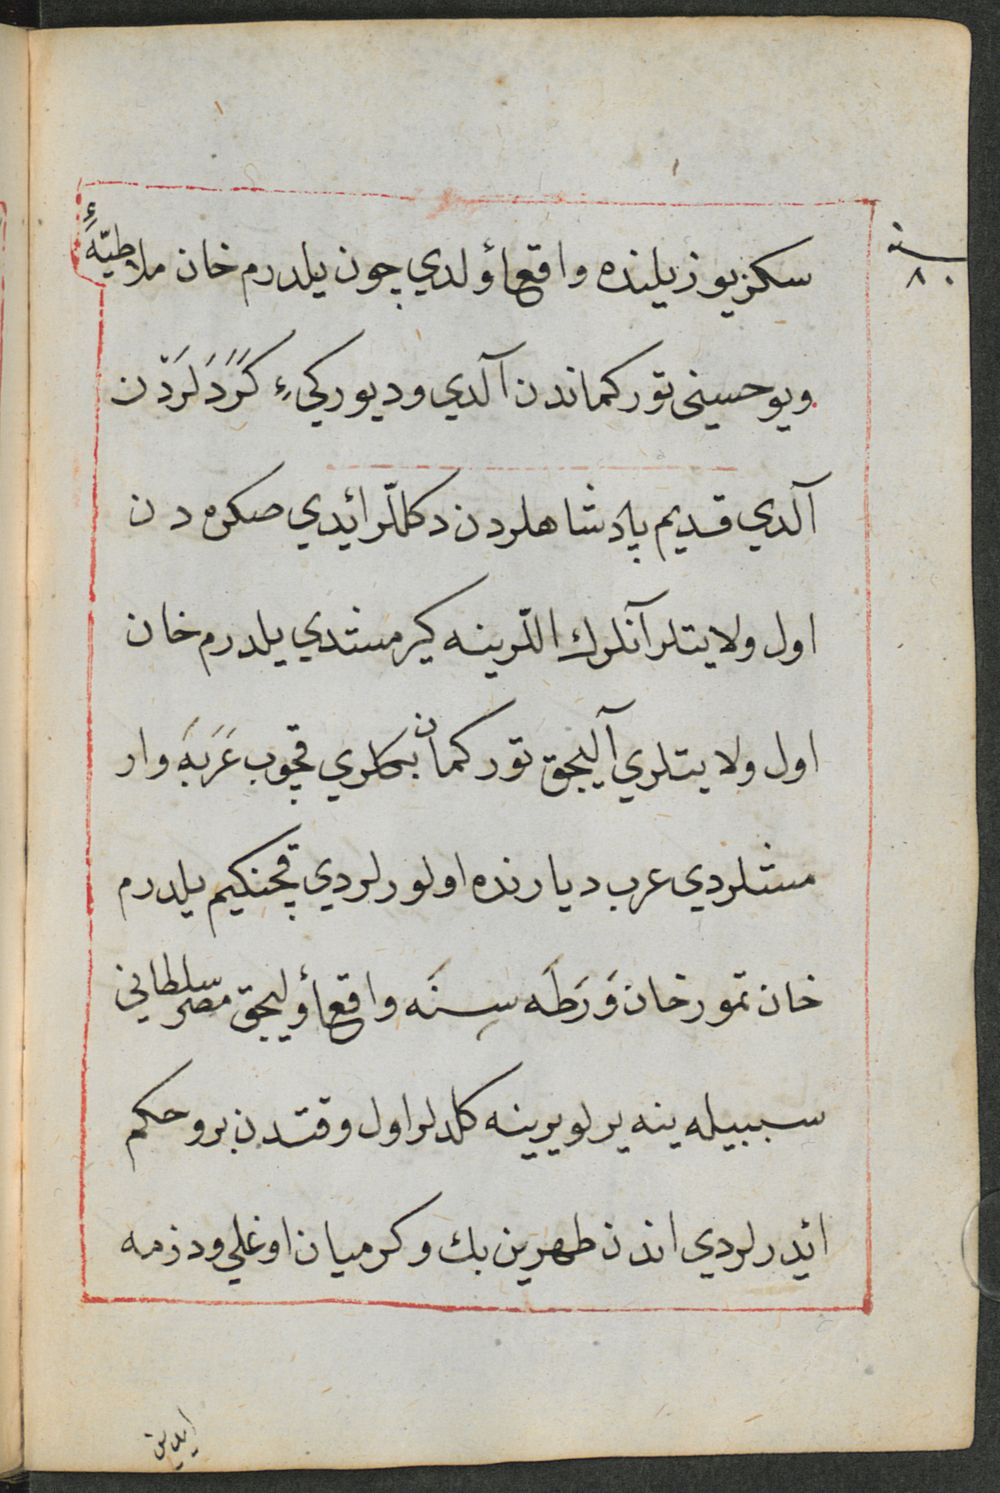 سنه ٨٠
سكزيوز يلنده واقع اولدي چون يلدرم خان ملاطيّهٔ
ويوحسينى توركماندن آلدي وديوركيء كُرْدَلَرَدْن
آلدي قديم پادشاهلردن دكللّرائيدي صكره دن
اول ولايتلر آنلرك اللّرينه كيرمشدي يلدرم خان
اول ولايتلري آليجق توركمان بكلري قچوب عَرَبَه وار
مشلردي عرب ديارنده اولورلردي قچنكيم يلدرم
خان تمورخان وَرَطَه سِنَه واقع أوليجق مصر سلطاني
سببيله ينه يرلويرينه كلدلر اول وقتدن برو حكم
ائيدرلردي اندن طهرين بك وكرميان اوغلي ودذمه